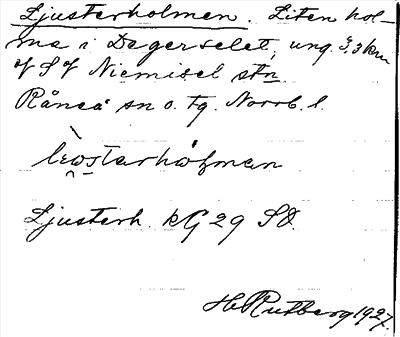 Ljusterholmen. Liten hol-
me i Degerselet, ung. 3,3 km
SSV Niemisel stn
Råneå sn o. tg. Norrb. l.
Ljusterh. kG 29 SO.
H Rutberg 1927.